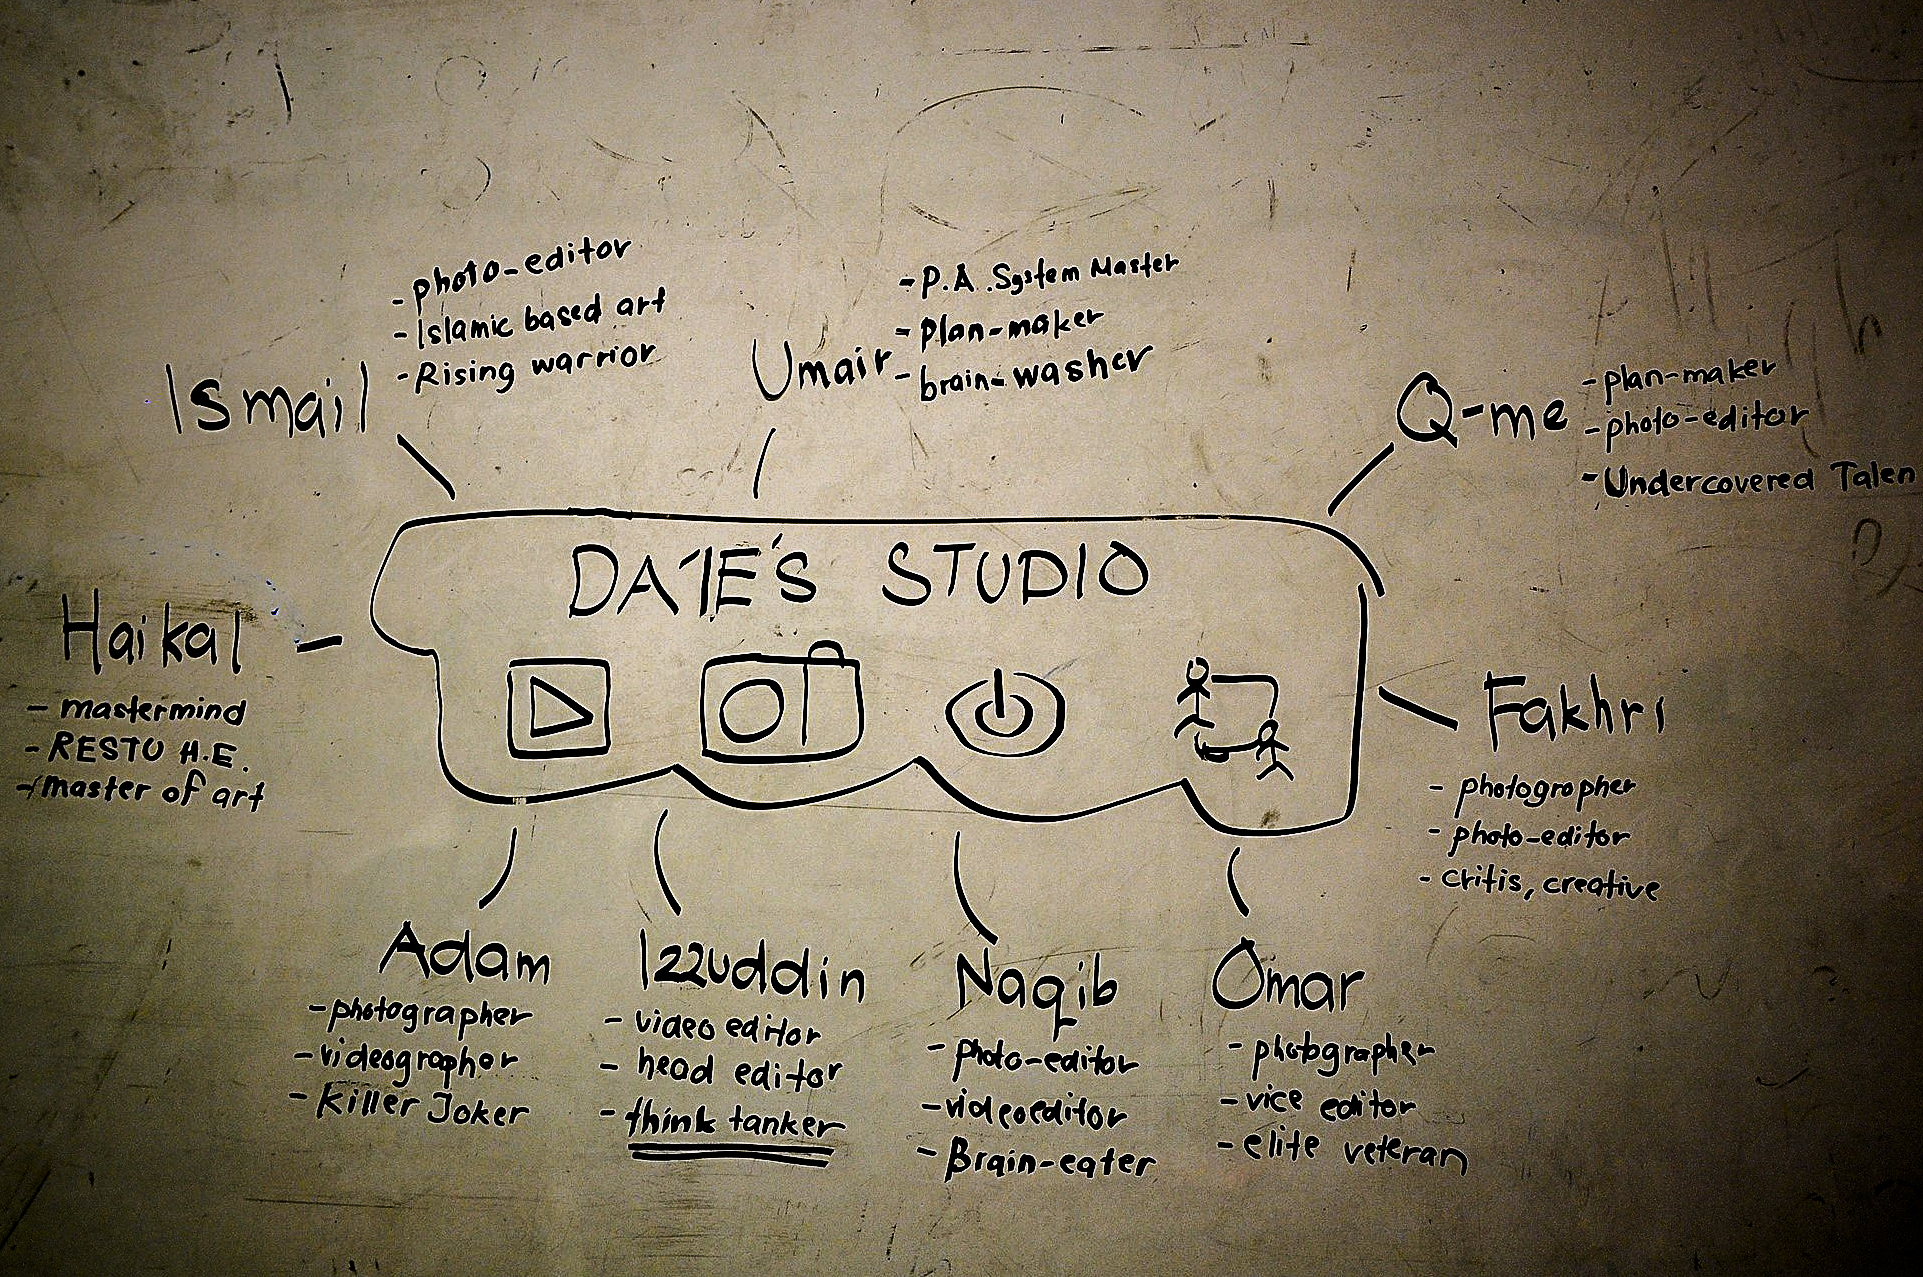 Ismail
- photo-editor
- Islamic based art
- Rising warrior
Umair
- P.A. System Master
- plan-maker
- brain-washer
Q-me
- plan-maker
- photo-editor
- Undercovered Talen
DATE'S STUDIO
Haikal
- mastermind
- RESTU H.E.
- master of art
Fakhri
- photographer
- photo-editor
- critis, creative
Adam
- photographer
- videographer
- Killer Joker
Izzuddin
- video editor
- head editor
- think tanker
Naqib
- photo-editor
- videoeditor
- Brain-eater
Omar
- photographer
- vice editor
- elite veteran